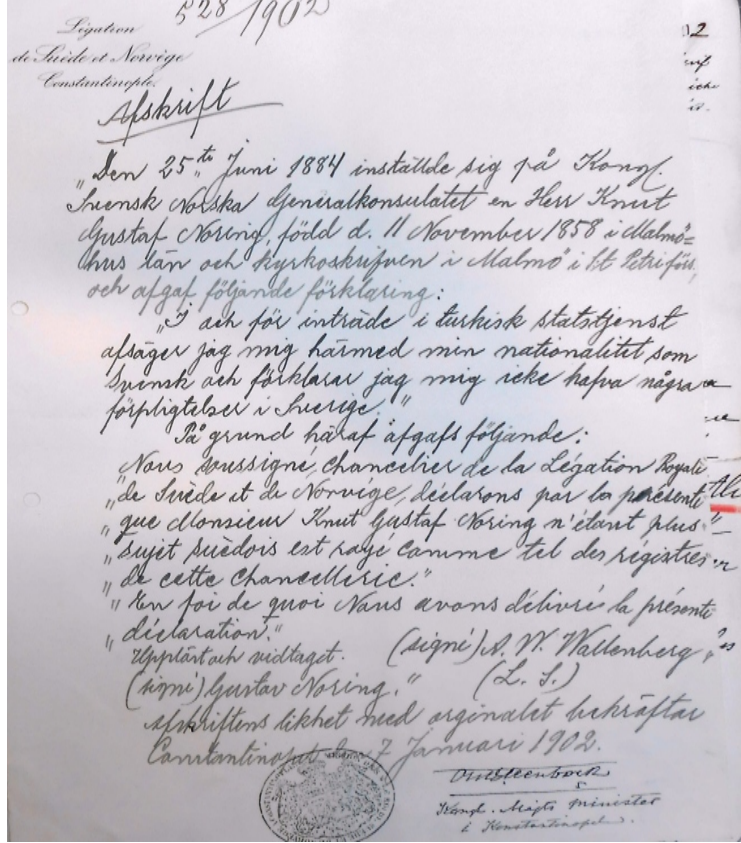 528/1902
Légation
de Suède et Norvège
Constantinople.
Afskrift
„Den 25te Juni 1884 inställde sig på Kongl.
Svensk Norska Generalkonsulatet en Herr Knut
Gustaf Noring, född d. 11 November 1858 i Malmö=
hus län och kyrkoskrifven i Malmö i St Petri förs,
och afgaf följande förklaring:
„I och för inträde i turkisk statstjenst
afsäger jag mig härmed min nationalitet som
Svensk och förklarar jag mig icke hafva några
förpligtelser i Sverige."
På grund häraf afgafs följande:
„Nous soussigné, chancelier de la Légation Royale
„de Suède et de Norvége, déclarons par la présente
„que Monsieur Knut Gustaf Noring n'étant plus
„sujet suèdois est rayé comme tel des régistres
„de cette Chancellerie."
„En foi de quoi Nous avons délivré la présente
„déclaration."
(signé) A. W. Wallenberg
Uppläst och vidtaget.
(signé) Gustav Noring." (L. S.)
Afskriftens likhet med orginalet bekräftar
Constantinopel den 7 Januari 1902.
Otto Steenbock
Kongl. Majts Minister
i Konstantinopel.